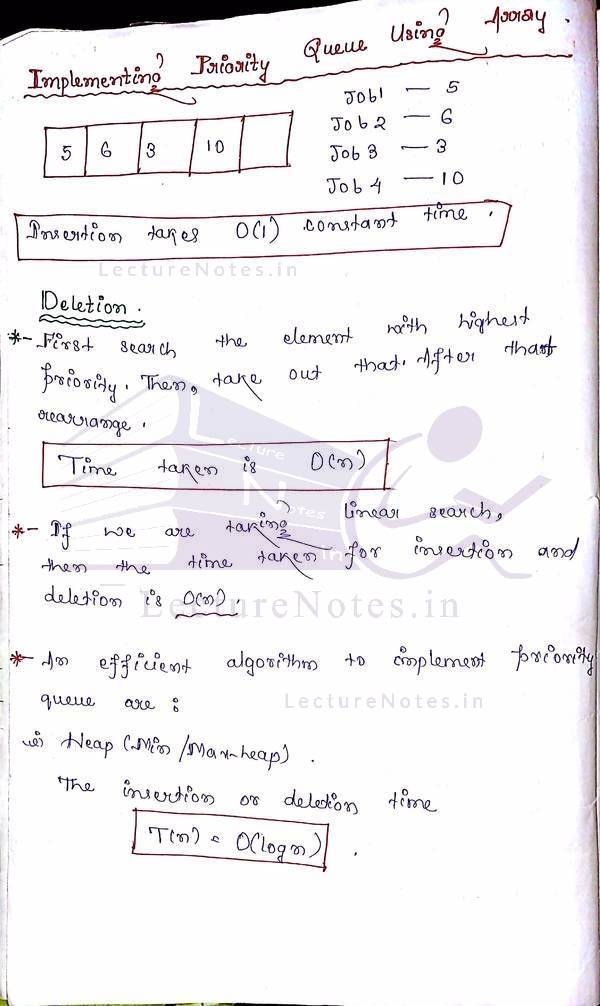 Implementing Priority Queue Using Array.
5 6 3 10
Job1 — 5
Job2 — 6
Job3 — 3
Job4 — 10
Insertion takes O(1) constant time.
LectureNotes.in
Deletion.
*- First search the element with highest
priority. Then, take out that. After that
rearrange.
Lecture
Time taken is O(n)
N
Notes
*- If we are taking linear search,
.in
then the time taken for insertion and
deletion is O(n).
LectureNotes.in
*- An efficient algorithm to implement priority
queue are :
LectureNotes.in
(i) Heap (Min /Max-heap).
The insertion or deletion time
T(n) = O(log n).